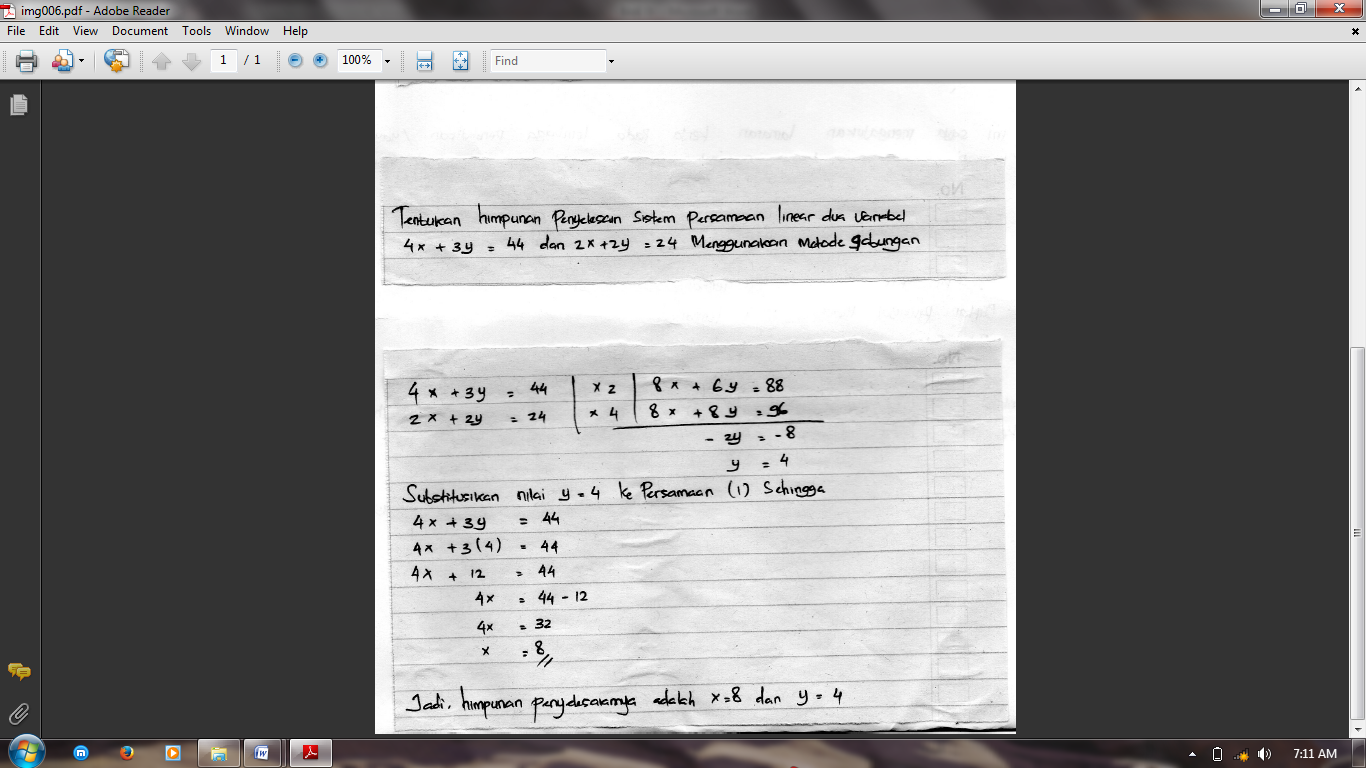 img006.pdf - Adobe Reader
File Edit View Document Tools Window Help
1 / 1 100% Find
No.
Tentukan himpunan Penyelesain Sistem Persamaan linear dua variabel
4x + 3y = 44 dan 2x + 2y = 24 Menggunakan Metode gabungan
No.
4x + 3y = 44 | x 2 | 8x + 6y = 88
2x + 2y = 24 | x 4 | 8x + 8y = 96
- 2y = -8
y = 4
Substitusikan nilai y = 4 ke Persamaan (1) Sehingga
4x + 3y = 44
4x + 3(4) = 44
4x + 12 = 44
4x = 44 - 12
4x = 32
x = 8
Jadi, himpunan penyelesaiannya adalah x = 8 dan y = 4
7:11 AM